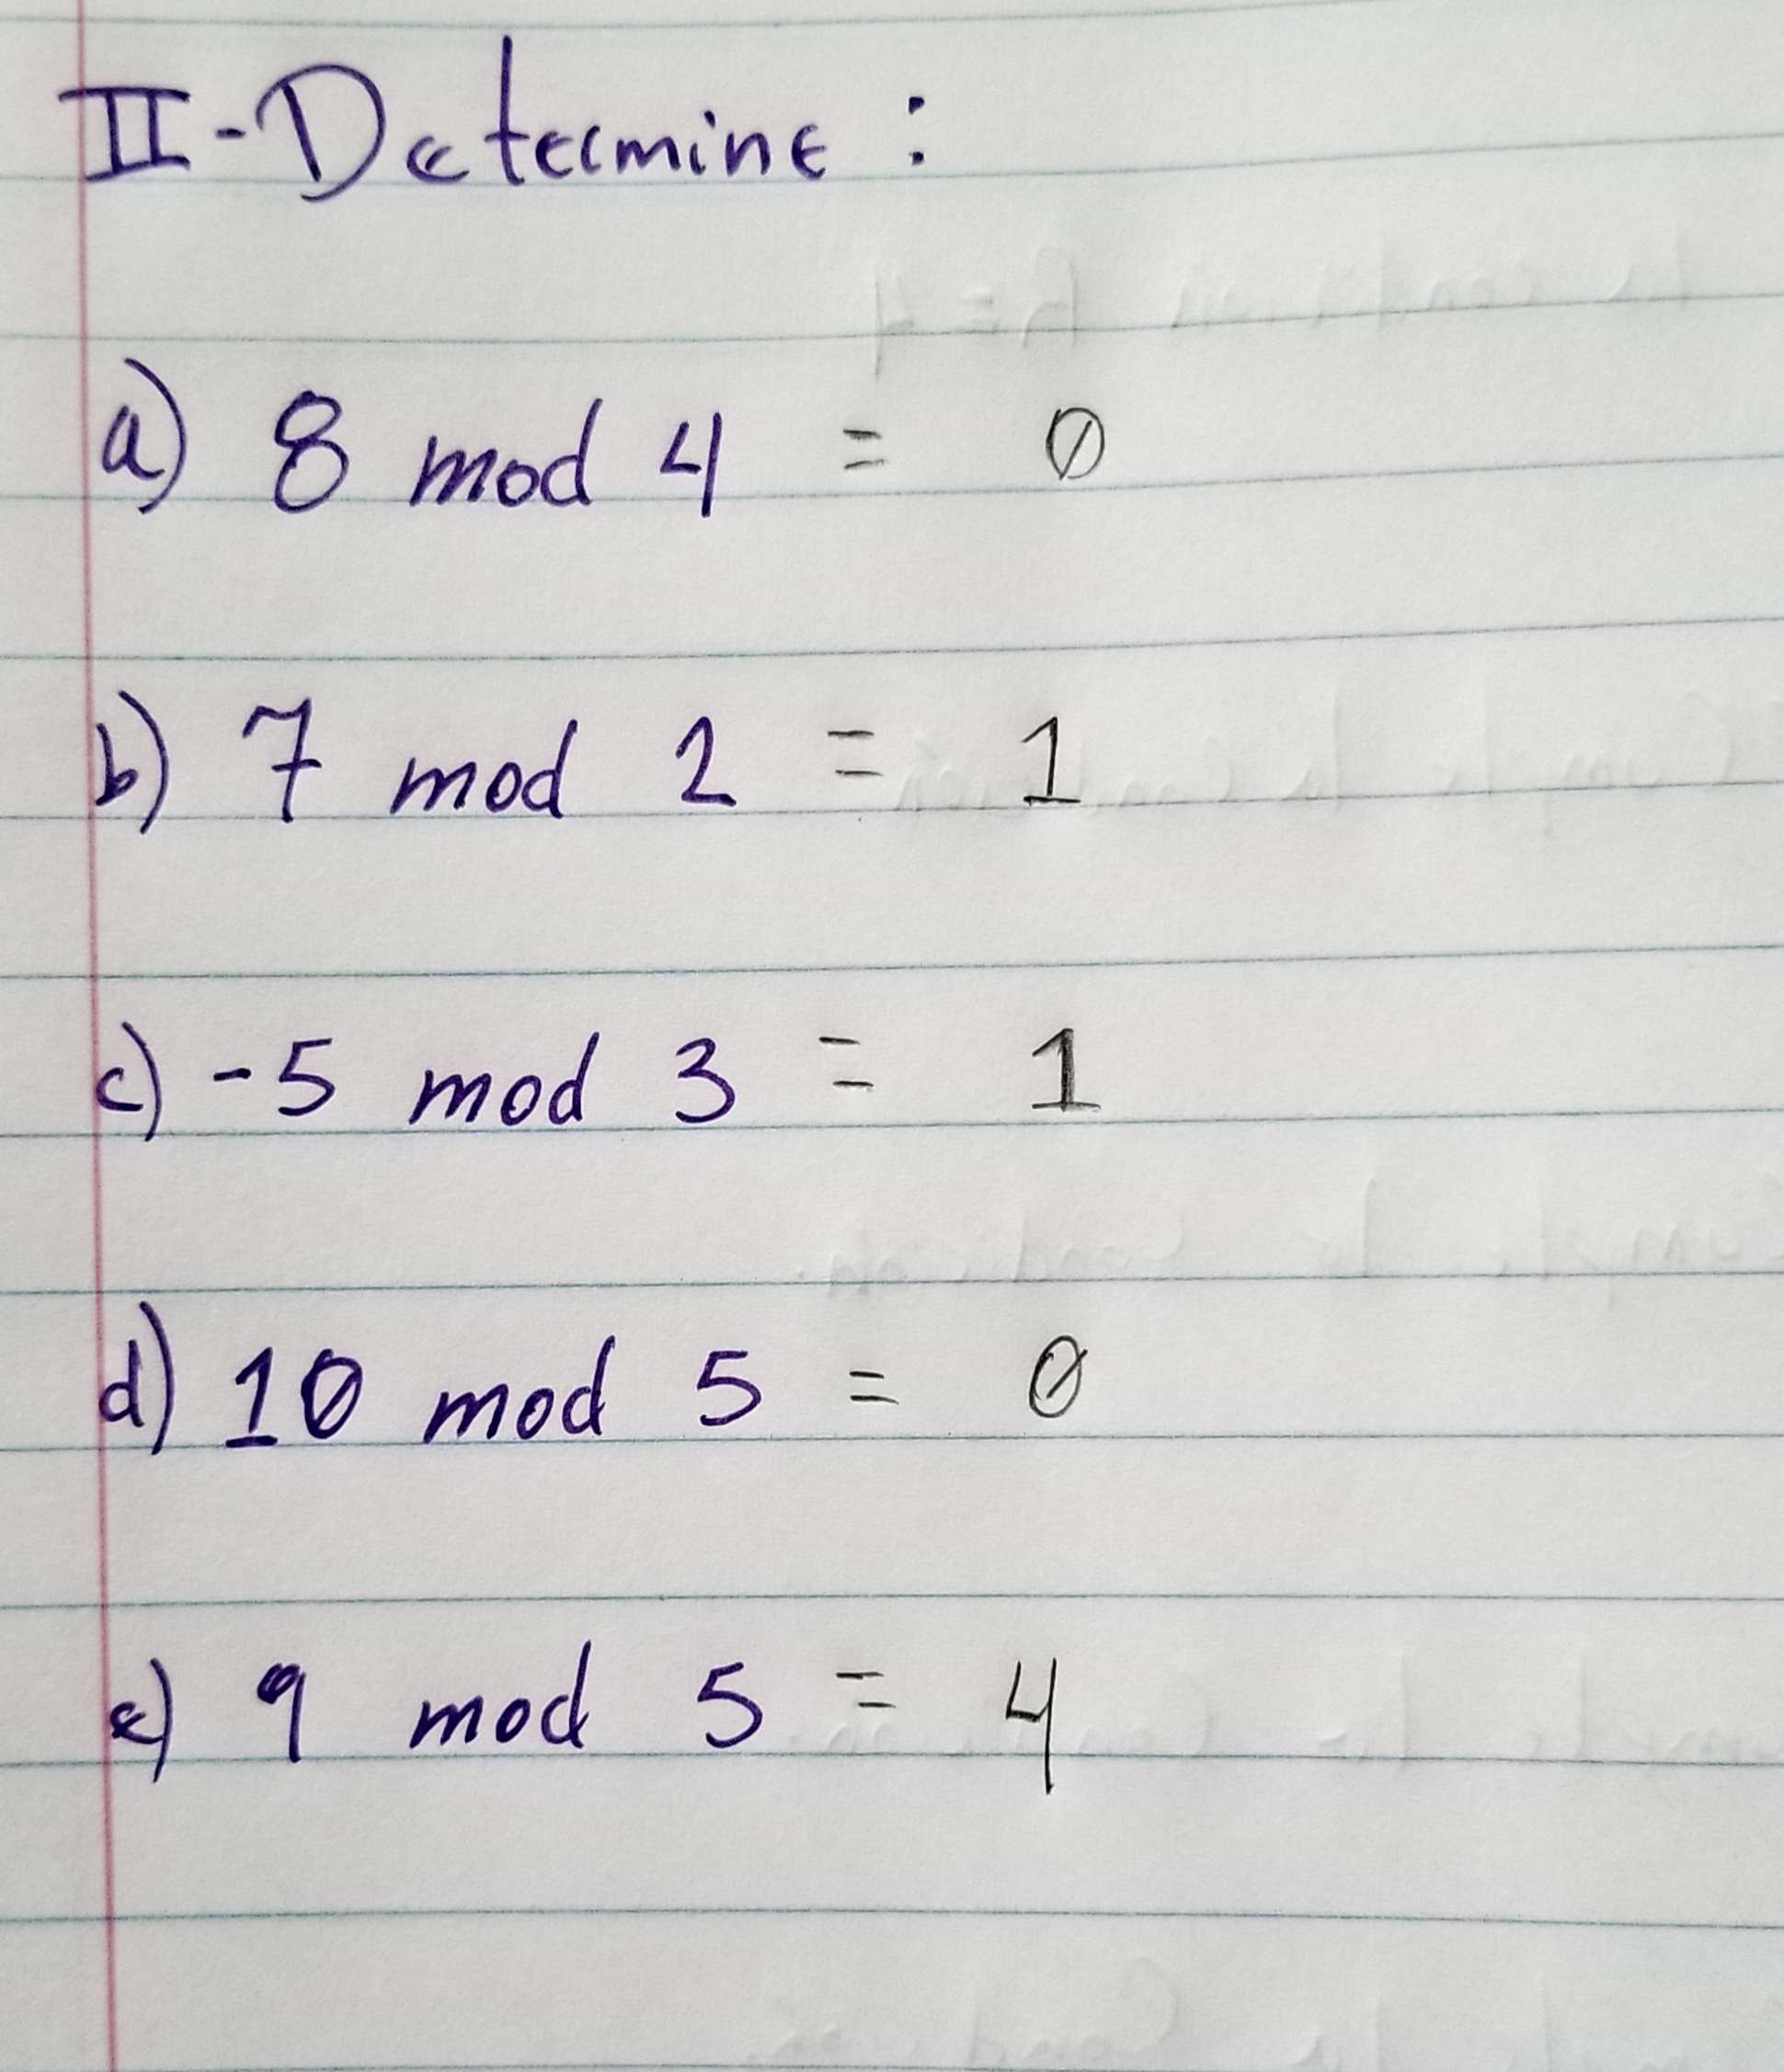 II-Determine :
a) 8 mod 4 = 0
b) 7 mod 2 = 1
c) -5 mod 3 = 1
d) 10 mod 5 = 0
e) 9 mod 5 = 4